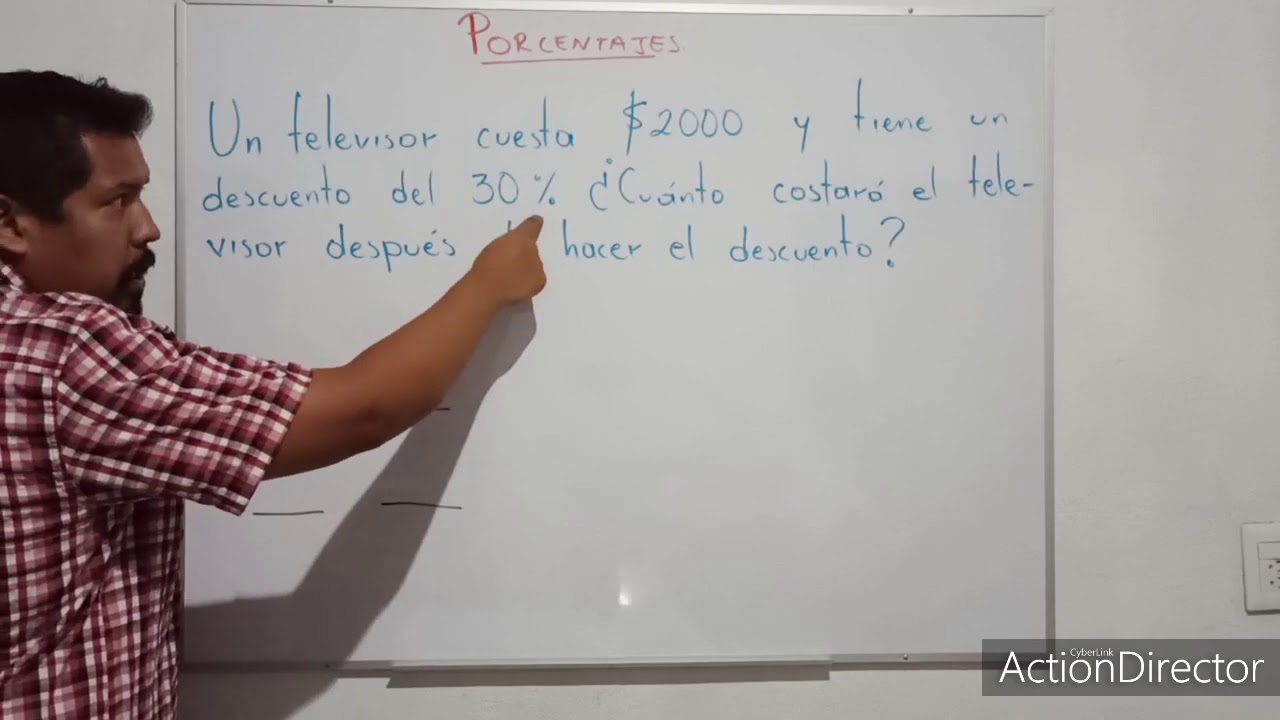 PORCENTAJES
Un televisor cuesta $2000 y tiene un
descuento del 30% ¿Cuánto costaró el tele-
visor después hacer el descuento?
CyberLink
ActionDirector